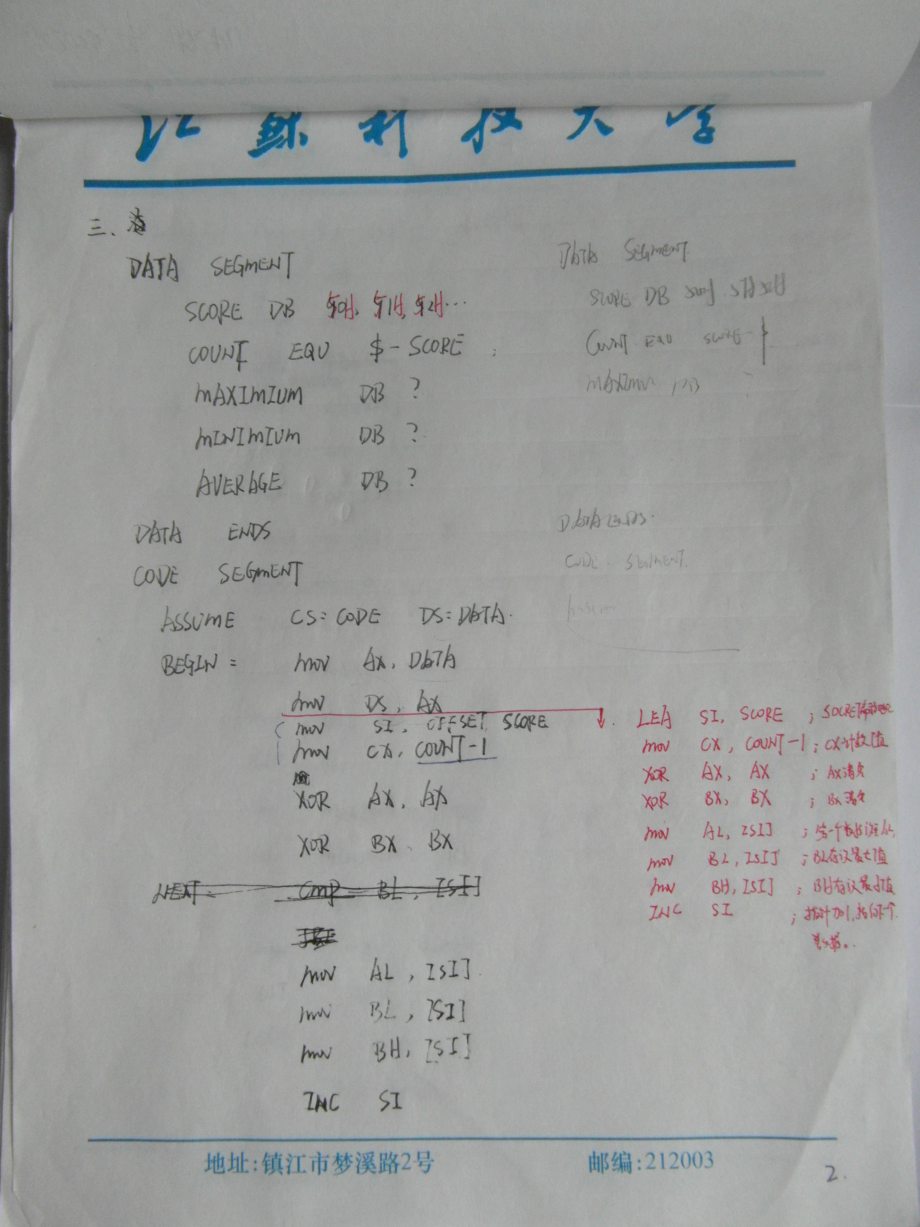 江蘇科技大学
三、
DATA SEGMENT
SCORE DB 50H, 51H, 52H...
COUNT EQU $-SCORE ;
MAXIMIUM DB ?
MINIMIUM DB ?
AVERAGE DB ?
DATA ENDS
CODE SEGMENT
ASSUME CS=CODE DS=DATA.
BEGIN= MOV AX, DATA
MOV DS, AX
MOV SI, OFFSET SCORE
MOV CX, COUNT-1
XOR AX, AX
XOR BX, BX
NEXT: CMP BL, [SI]
MOV AL, [SI]
MOV BL, [SI]
MOV BH, [SI]
INC SI
DATA SEGMENT
SCORE DB 50H 51H 52H
COUNT EQU SCORE-
DATA ENDS.
CODE SEGMENT
LEA SI, SCORE ;
MOV CX, COUNT-1 ; CX计数值
XOR AX, AX ; AX清0
XOR BX, BX ; BX清0
MOV AL, [SI] ; 第一个数
MOV BL, [SI] ; BL存议最大值
MOV BH, [SI] ; BH存议最小值
INC SI ; 指针加1,指向下个
数据。
地址:镇江市梦溪路2号 邮编:212003
2.